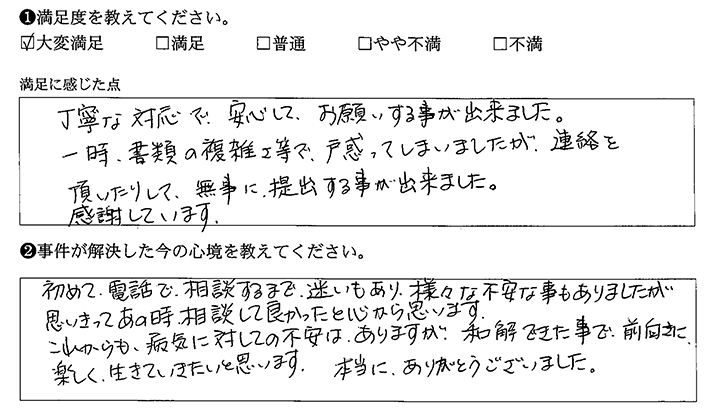 ❶満足度を教えてください。
☑大変満足 □満足 □普通 □やや不満 □不満
満足に感じた点
丁寧な対応で、安心して、お願いする事が出来ました。
一時、書類の複雑さ等で、戸惑ってしまいましたが、連絡を
頂いたりして、無事に、提出する事が出来ました。
感謝しています。
❷事件が解決した今の心境を教えてください。
初めて、電話で、相談するまで、迷いもあり、様々な不安な事もありましたが
思いきってあの時、相談して良かったと心から思います。
これからも、病気に対しての不安は、ありますが、和解できた事で、前向きに、
楽しく、生きていきたいと思います。 本当に、ありがとうございました。